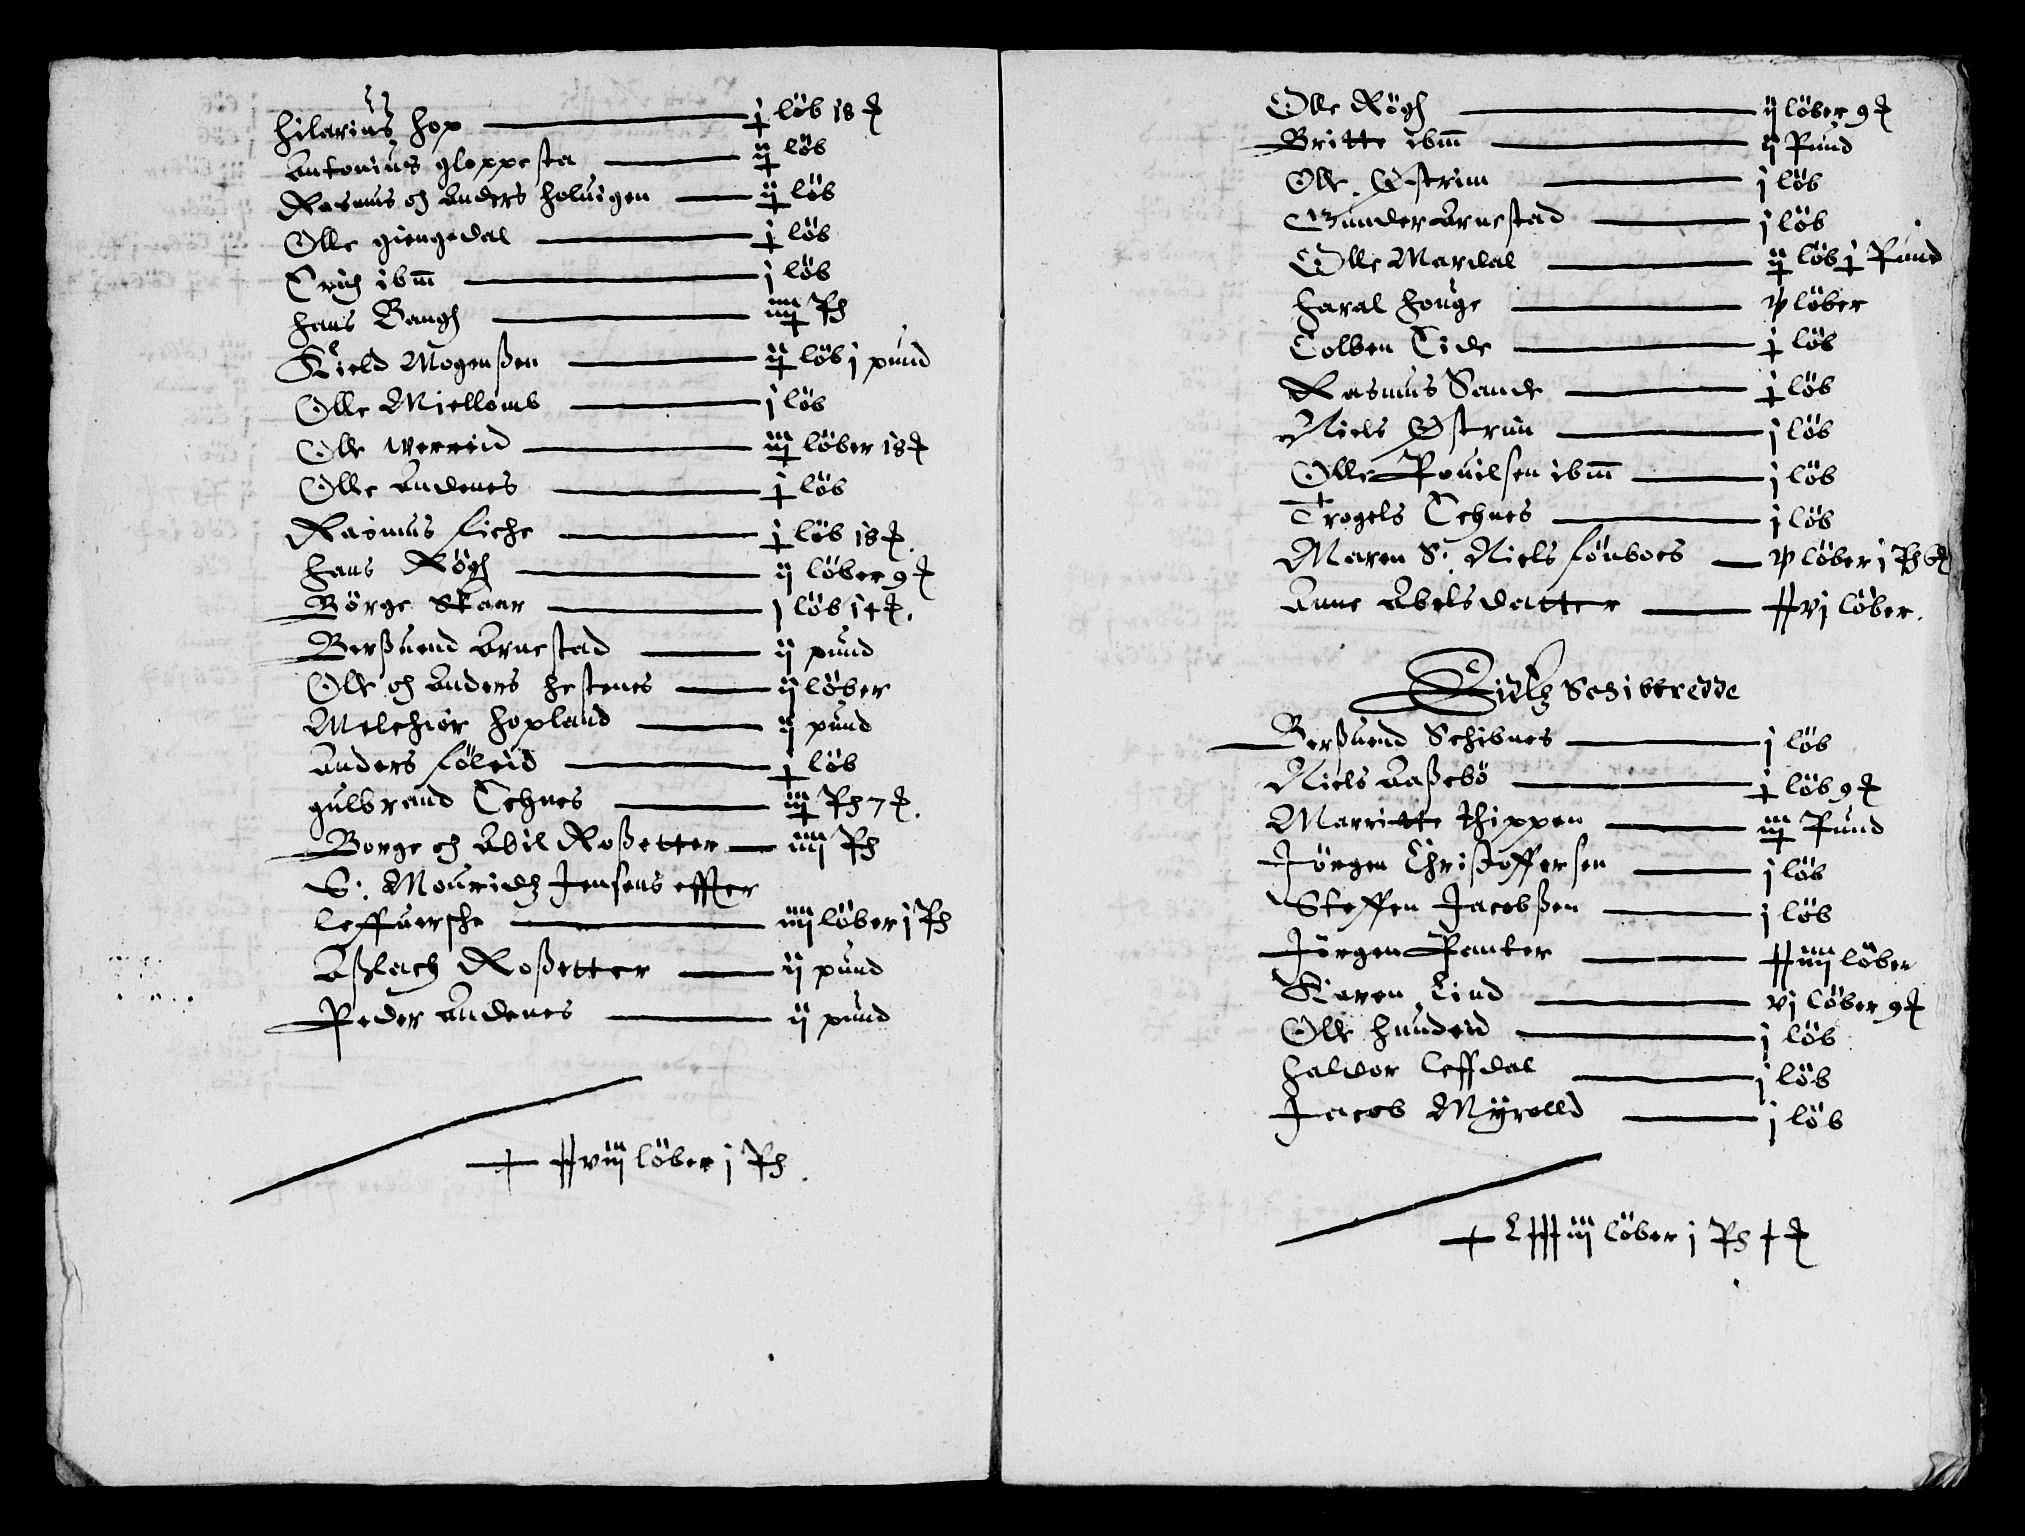 Hilarius Hop — j löb 18 ℔
Antonius gloppesta — ij löb
Rasmus oc Anders Holuigen — ij löb
Olle giengedal — j löb
Erich ibm — j löb
Hans Bangh — iiij Pd
Kield Mogenßen — ij löb j pund
Olle Miellomb — j löb
Olle Werrid — iij löber 18 ℔
Olle Andenes — j löb
Rasmus Liche — j löb 18 ℔.
Hans Rögh — ij löber 9 ℔
Börge Skaar — j löb 14 ℔.
Berßuend Arnestad — ij pund
Olle oc Anders Hestenes — ij löber
Melchior Hopland — ij pund
Anders Föleid — j löb
gulbrand Tehnes — iij Pd 7 ℔.
Borge oc Abil Roßetter — iiij Pd
S: Mouridtz Jensens effter
leffuersche — iiij löber j Pd
Aßlach Roßetter — ij pund
Peder Andenes — ij pund
xxviij löber j Pd.
Olle Rögh — ij löber 9 ℔
Britte ibm — ij Pund
Olle Østrim — j löb
Gunder Arnestad — j löb
Olle Mardal — ij löb j Pund
Haral Houge — v löber
Tolben Eide — j löb
Rasmus Sande — j löb
Niels Østrim — j löb
Olle Pouilsen ibm — j löb
Trogels Tehnes — j löb
Maren S: Niels Fönboes — v löber j Pd 6 ℔
Anne Abelsdatter — xxvj löber.
Eidtz Schibbredde
Berßuend Schibnes — j löb
Niels Aaßebö — j löb 9 ℔
Marritte Thippen — iij Pund
Jörgen Christoffersen — j löb
Steffen Jacobßen — j löb
Jörgen Panter — xxiiij löber
Karen Lind — vj löber 9 ℔
Olle Hunded — j löb
Halvor Leffdal — j löb
Jacob Myrolld — j löb
Lxxxiij löber j Pd